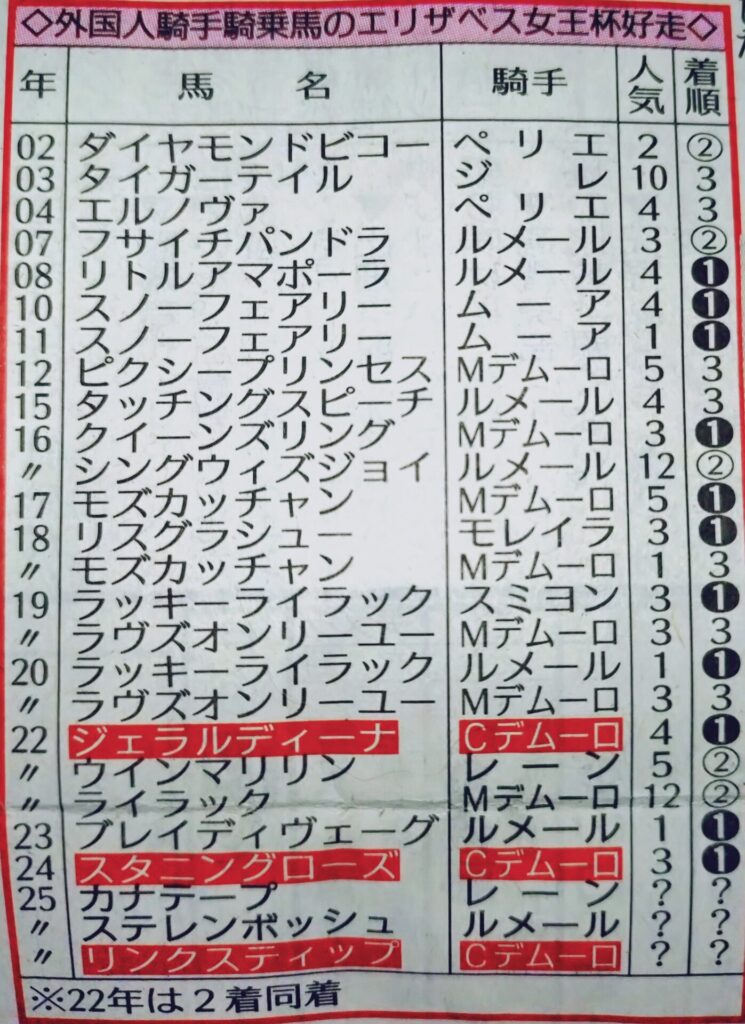 ◇外国人騎手騎乗馬のエリザベス女王杯好走◇
年 馬名 騎手 人気 着順
02 ダイヤモンドビコー ペリエ 2 ②
03 タイガーテイル ジレ 10 3
04 エルノヴァ ペリエ 4 3
07 フサイチパンドラ ルメール 3 ②
08 リトルアマポーラ ルメール 4 ❶
10 スノーフェアリー ムーア 4 ❶
11 スノーフェアリー ムーア 1 ❶
12 ピクシープリンセス Mデムーロ 5 3
15 タッチングスピーチ ルメール 4 3
16 クイーンズリング Mデムーロ 3 ❶
〃 シングウィズジョイ ルメール 12 ②
17 モズカッチャン Mデムーロ 5 ❶
18 リスグラシュー モレイラ 3 ❶
〃 モズカッチャン Mデムーロ 1 3
19 ラッキーライラック スミヨン 3 ❶
〃 ラヴズオンリーユー Mデムーロ 3 3
20 ラッキーライラック ルメール 1 ❶
〃 ラヴズオンリーユー Mデムーロ 3 3
22 ジェラルディーナ Cデムーロ 4 ❶
〃 ウインマリリン レーン 5 ②
〃 ライラック Mデムーロ 12 ②
23 ブレイディヴェーグ ルメール 1 ❶
24 スタニングローズ Cデムーロ 3 ❶
25 カナテープ レーン ? ?
〃 ステレンボッシュ ルメール ? ?
〃 リンクスティップ Cデムーロ ? ?
※22年は2着同着